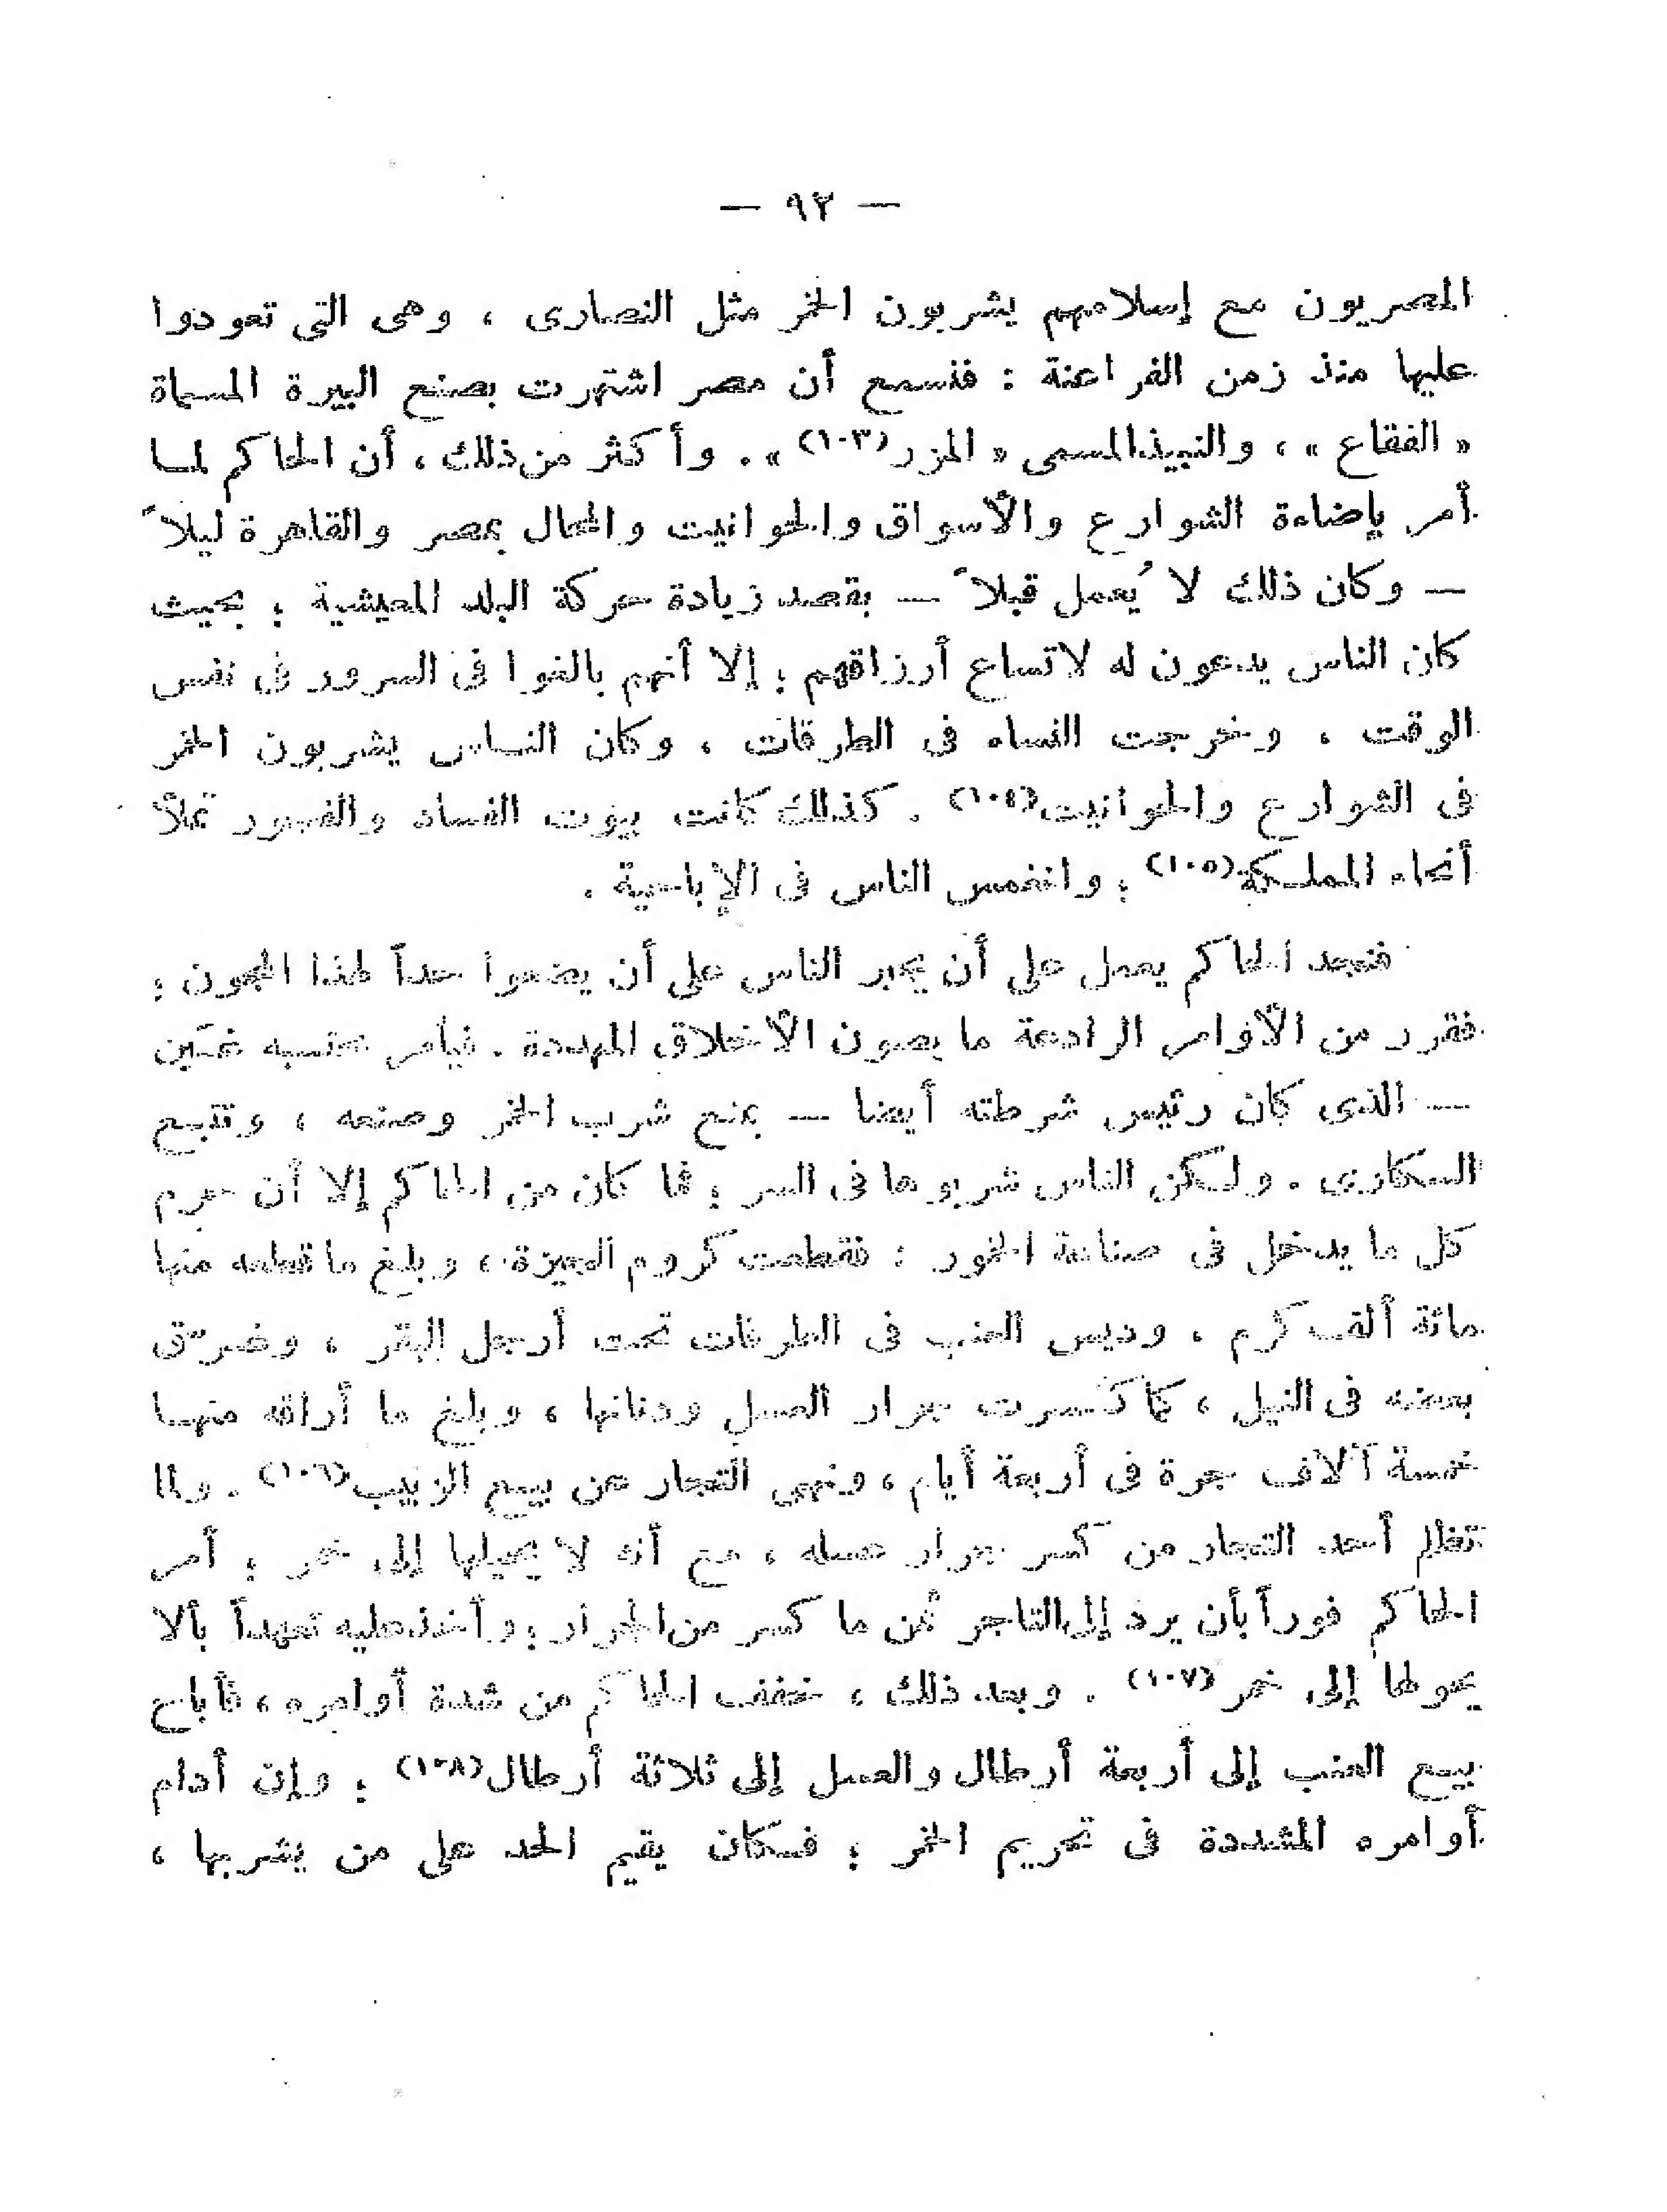 — ٩٢ —
المصريون مع إسلامهم يشربون الخمر مثل النصارى ، وهى التى تعودوا
عليها منذ زمن الفراعنة : فنسمع أن مصر اشتهرت بصنع البيرة المسماة
« الفقاع » ، والنبيذ المسمى « المزر (١٠٣) » . وأكثر من ذلك ، أن الحاكم لما
أمر بإضاءة الشوارع والأسواق والحوانيت والمحال بمصر والقاهرة ليلاً
— وكان ذلك لا يُعمل قبلاً — بقصد زيادة حركة البلد المعيشية ؛ بحيث
كان الناس يدعون له لاتساع أرزاقهم ؛ إلا أنهم بالغوا فى السرور فى نفس
الوقت ، وخرجت النساء فى الطرقات ، وكان الناس يشربون الخمر
فى الشوارع والحوانيت (١٠٤) . كذلك كانت بيوت الفساد والفجور تملأ
أنحاء المملكة (١٠٥) ؛ وانغمس الناس فى الإباحية .
فنجد الحاكم يعمل على أن يجبر الناس على أن يضعوا حداً لهذا المجون ؛
فقرر من الأوامر الرادعة ما يصون الأخلاق المهددة . فيأمر محتسبه غَيْن
— الذى كان رئيس شرطته أيضا — بمنع شرب الخمر وصنعه ، وتتبع
السكارى . ولكن الناس شربوها فى السر ؛ فما كان من الحاكم إلا أن حرم
كل ما يدخل فى صناعة الخمور : فقطعت كروم الجيزة ، وبلغ ما قطعه منها
مائة ألف كرم ، وديس العنب فى الطرقات تحت أرجل البقر ، وغرّق
بعضه فى النيل ، كما كسرت جرار العسل ودنانها ، وبلغ ما أراقه منها
خمسة آلاف جرة فى أربعة أيام ، ونهى التجار عن بيع الزبيب (١٠٦) . ولما
تظلم أحد التجار من كسر جرار عسله ، مع أنه لا يحيلها إلى خمر ؛ أمر
الحاكم فوراً بأن يرد إلى التاجر ثمن ما كسر من الجرار ؛ وأخذ عليه تعهداً بألا
يحولها إلى خمر (١٠٧) . وبعد ذلك ، خفف الحاكم من شدة أوامره ، فأباح
بيع العنب إلى أربعة أرطال والعسل إلى ثلاثة أرطال (١٠٨) ؛ وإن أدام
أوامره المشددة فى تحريم الخمر ؛ فكان يقيم الحد على من يشربها ،